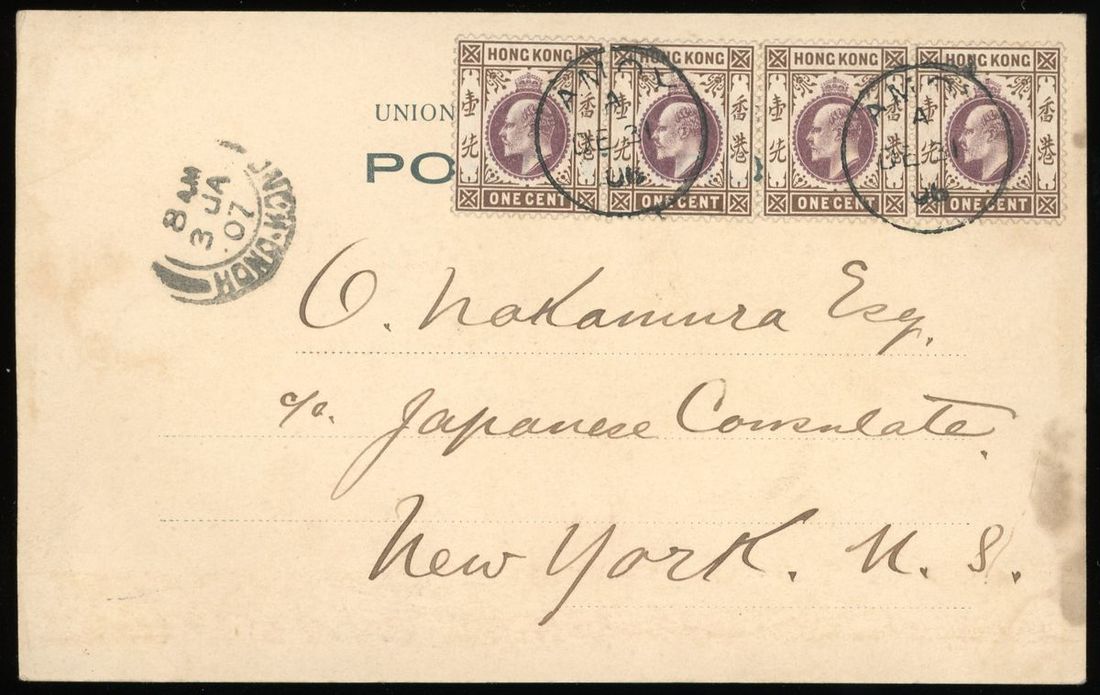 HONG KONG HONG KONG HONG KONG HONG KONG
壹先 香港 壹先 香港 壹先 香港 壹先 香港
ONE CENT ONE CENT ONE CENT ONE CENT
AMOY
A
DE 31
06
AMOY
A
DE 31
06
UNION
PO
HONG-KONG
8 AM
3 JA
07
O. Nakamura Esq.
c/o. Japanese Consulate.
New York. U. S.